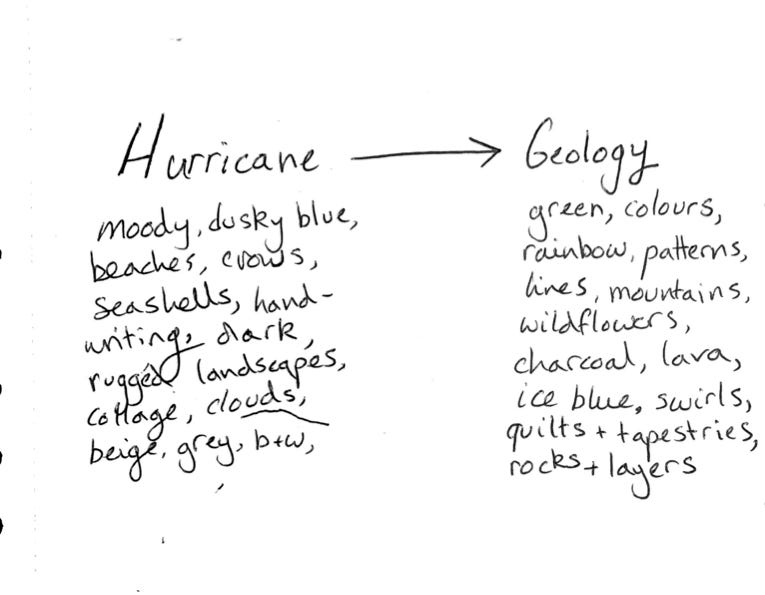 Hurricane → Geology
moody, dusky blue,
beaches, crows,
seashells, hand-
writing, dark,
rugged landscapes,
cottage, clouds,
beige, grey, b+w,
green, colours,
rainbow, patterns,
lines, mountains,
wildflowers,
charcoal, lava,
ice blue, swirls,
quilts + tapestries,
rocks + layers